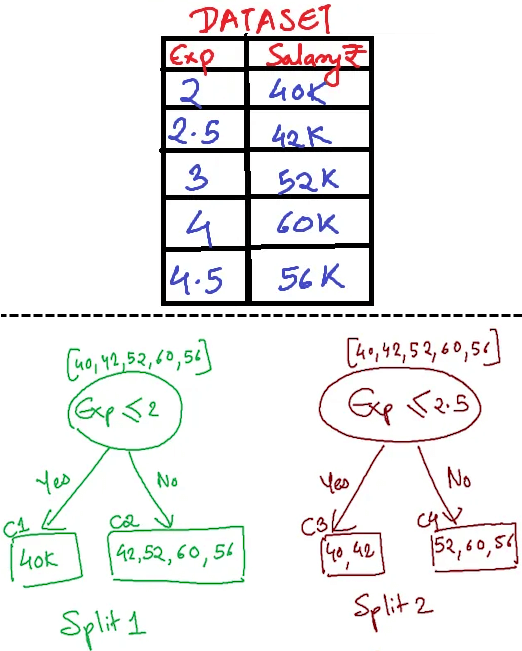 DATASET
Exp Salary ₹
2 40K
2.5 42K
3 52K
4 60K
4.5 56K
[40,42,52,60,56]
Exp ≤ 2
Yes No
C1 C2
40K 42,52,60,56
Split 1
[40,42,52,60,56]
Exp ≤ 2.5
Yes No
C3 C4
40,42 52,60,56
Split 2